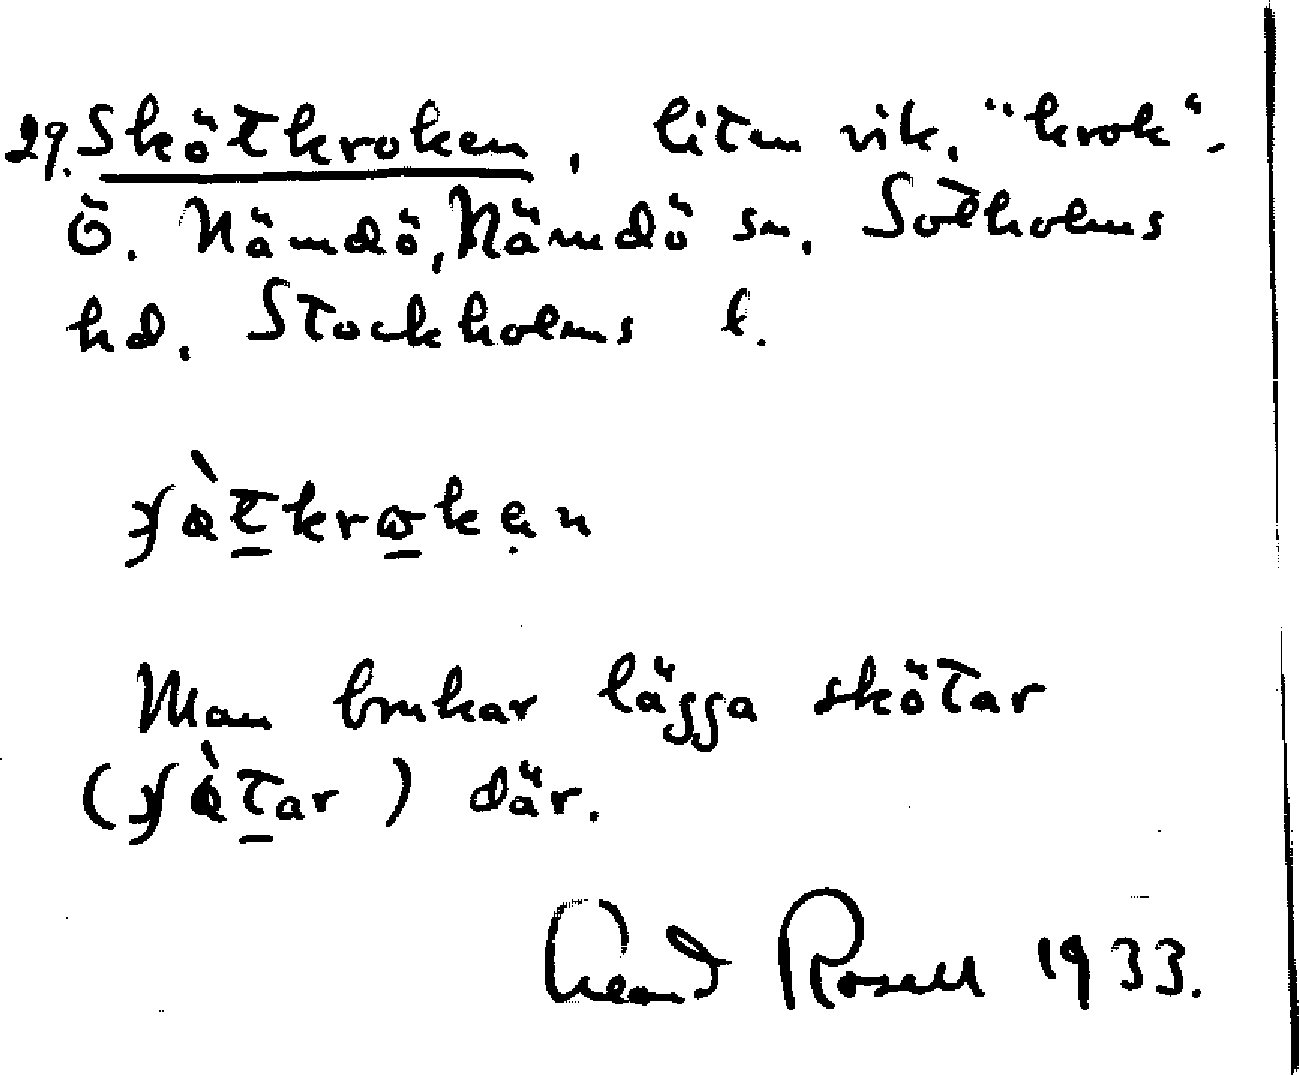 29. Skötkroken, liten vik, "krok" -
Ö. Nämdö, Nämdö sn. Sotholms
hd. Stockholms l.
Man brukar lägga skötar
där.
Rosell 1933.